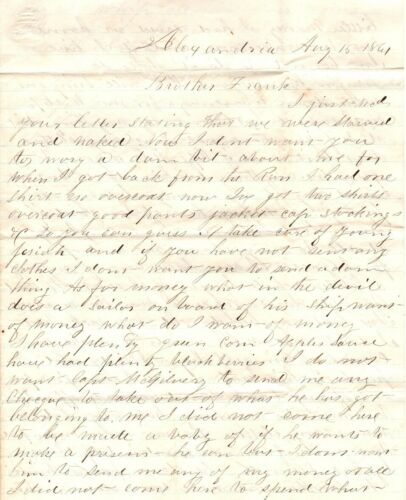 Alexandria Aug 15 1861
Brother Frank
I just got
your letter stating that we were starved
and naked Now I dont want you
to worry a damn bit about me for
when I got back from the Run I had one
shirt no overcoat now Ive got two shirts
overcoat good pants jacket cap stockings
& So you can guess I take care of young
Josiah and if you have not sent any
clothes I dont want you to send a dam
thing As for money what in the devil
does a Sailor on board of his ship want
of money what do I want of money
I have plenty green corn Apple Sauce
have had plenty blackberries I do not
want Capt McGilvery to send me any
Checque to take out of what he has got
belonging to me I did not come here
to be made a baby of if he wants to
make a present he can but I dont want
him to send me any of my money at all
I did not come here to spend what